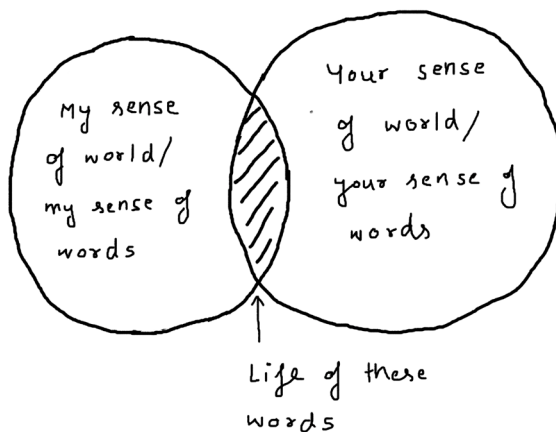 My sense
of world/
my sense of
words
Your sense
of world/
your sense of
words
Life of these
words